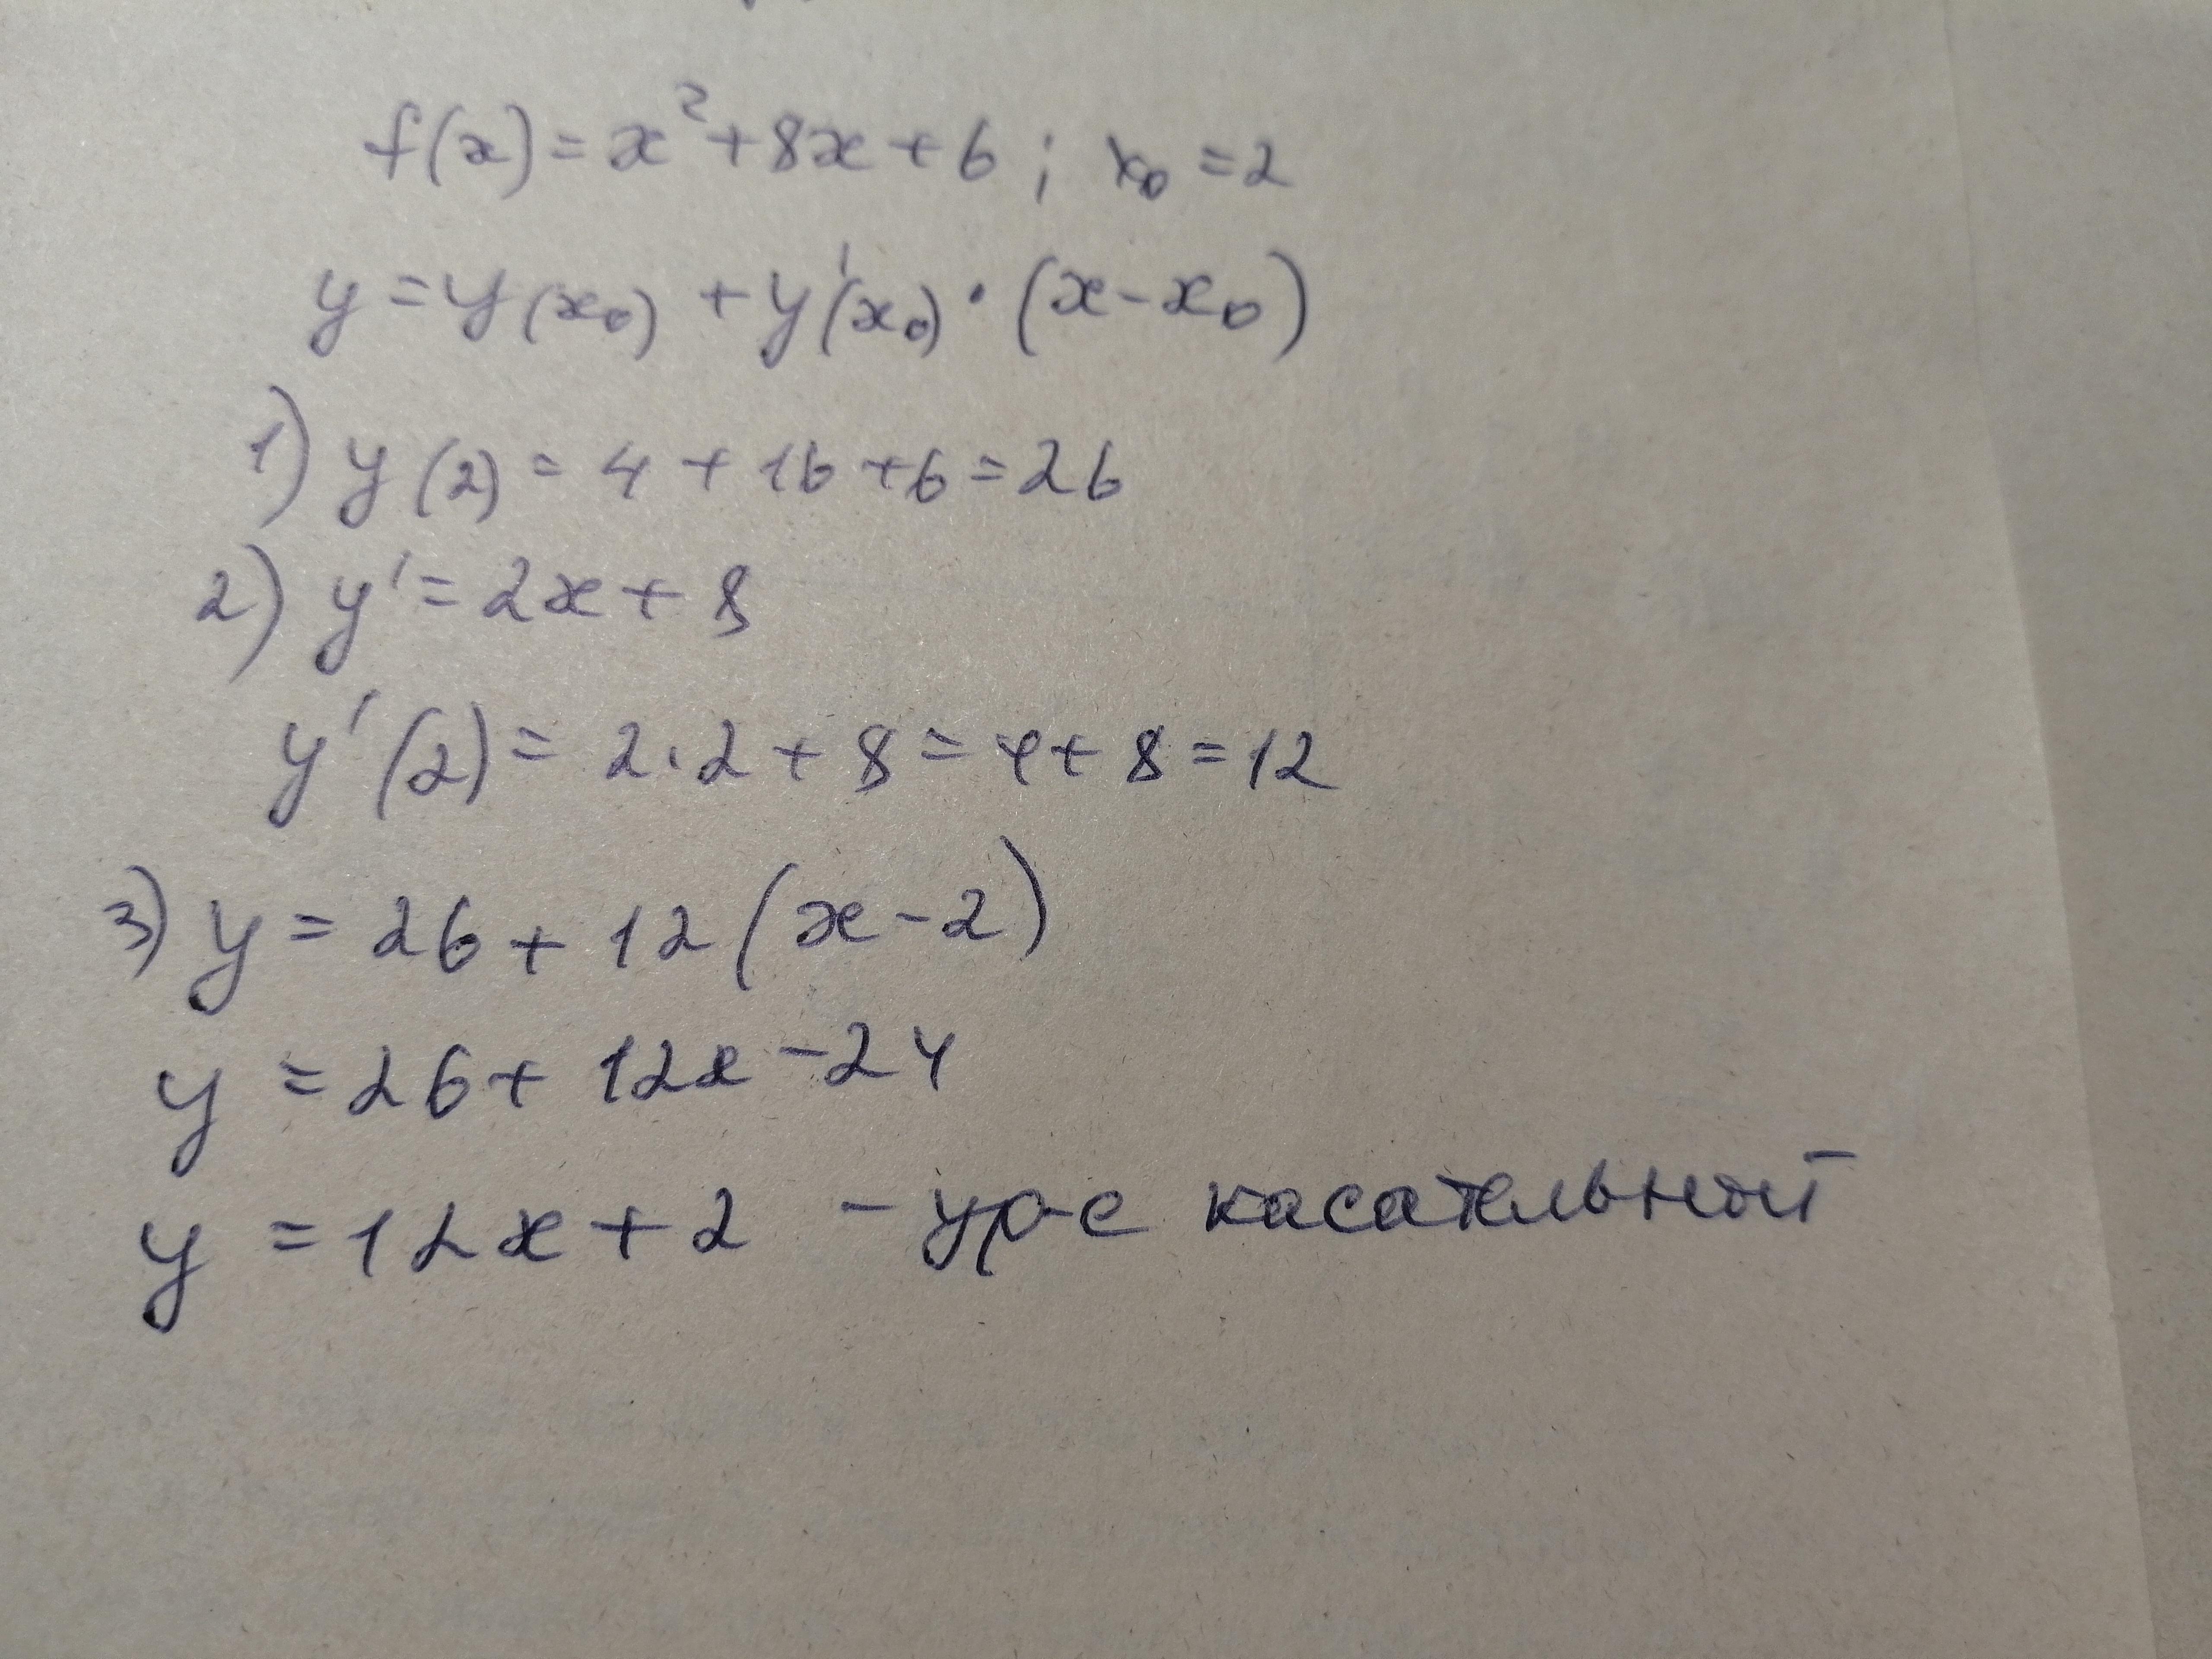 f(x) = x² + 8x + 6 ; x₀ = 2
y = y(x₀) + y'(x₀) · (x - x₀)
1) y(2) = 4 + 16 + 6 = 26
2) y' = 2x + 8
y'(2) = 2 · 2 + 8 = 4 + 8 = 12
3) y = 26 + 12 (x - 2)
y = 26 + 12x - 24
y = 12x + 2 - ур-е касательной